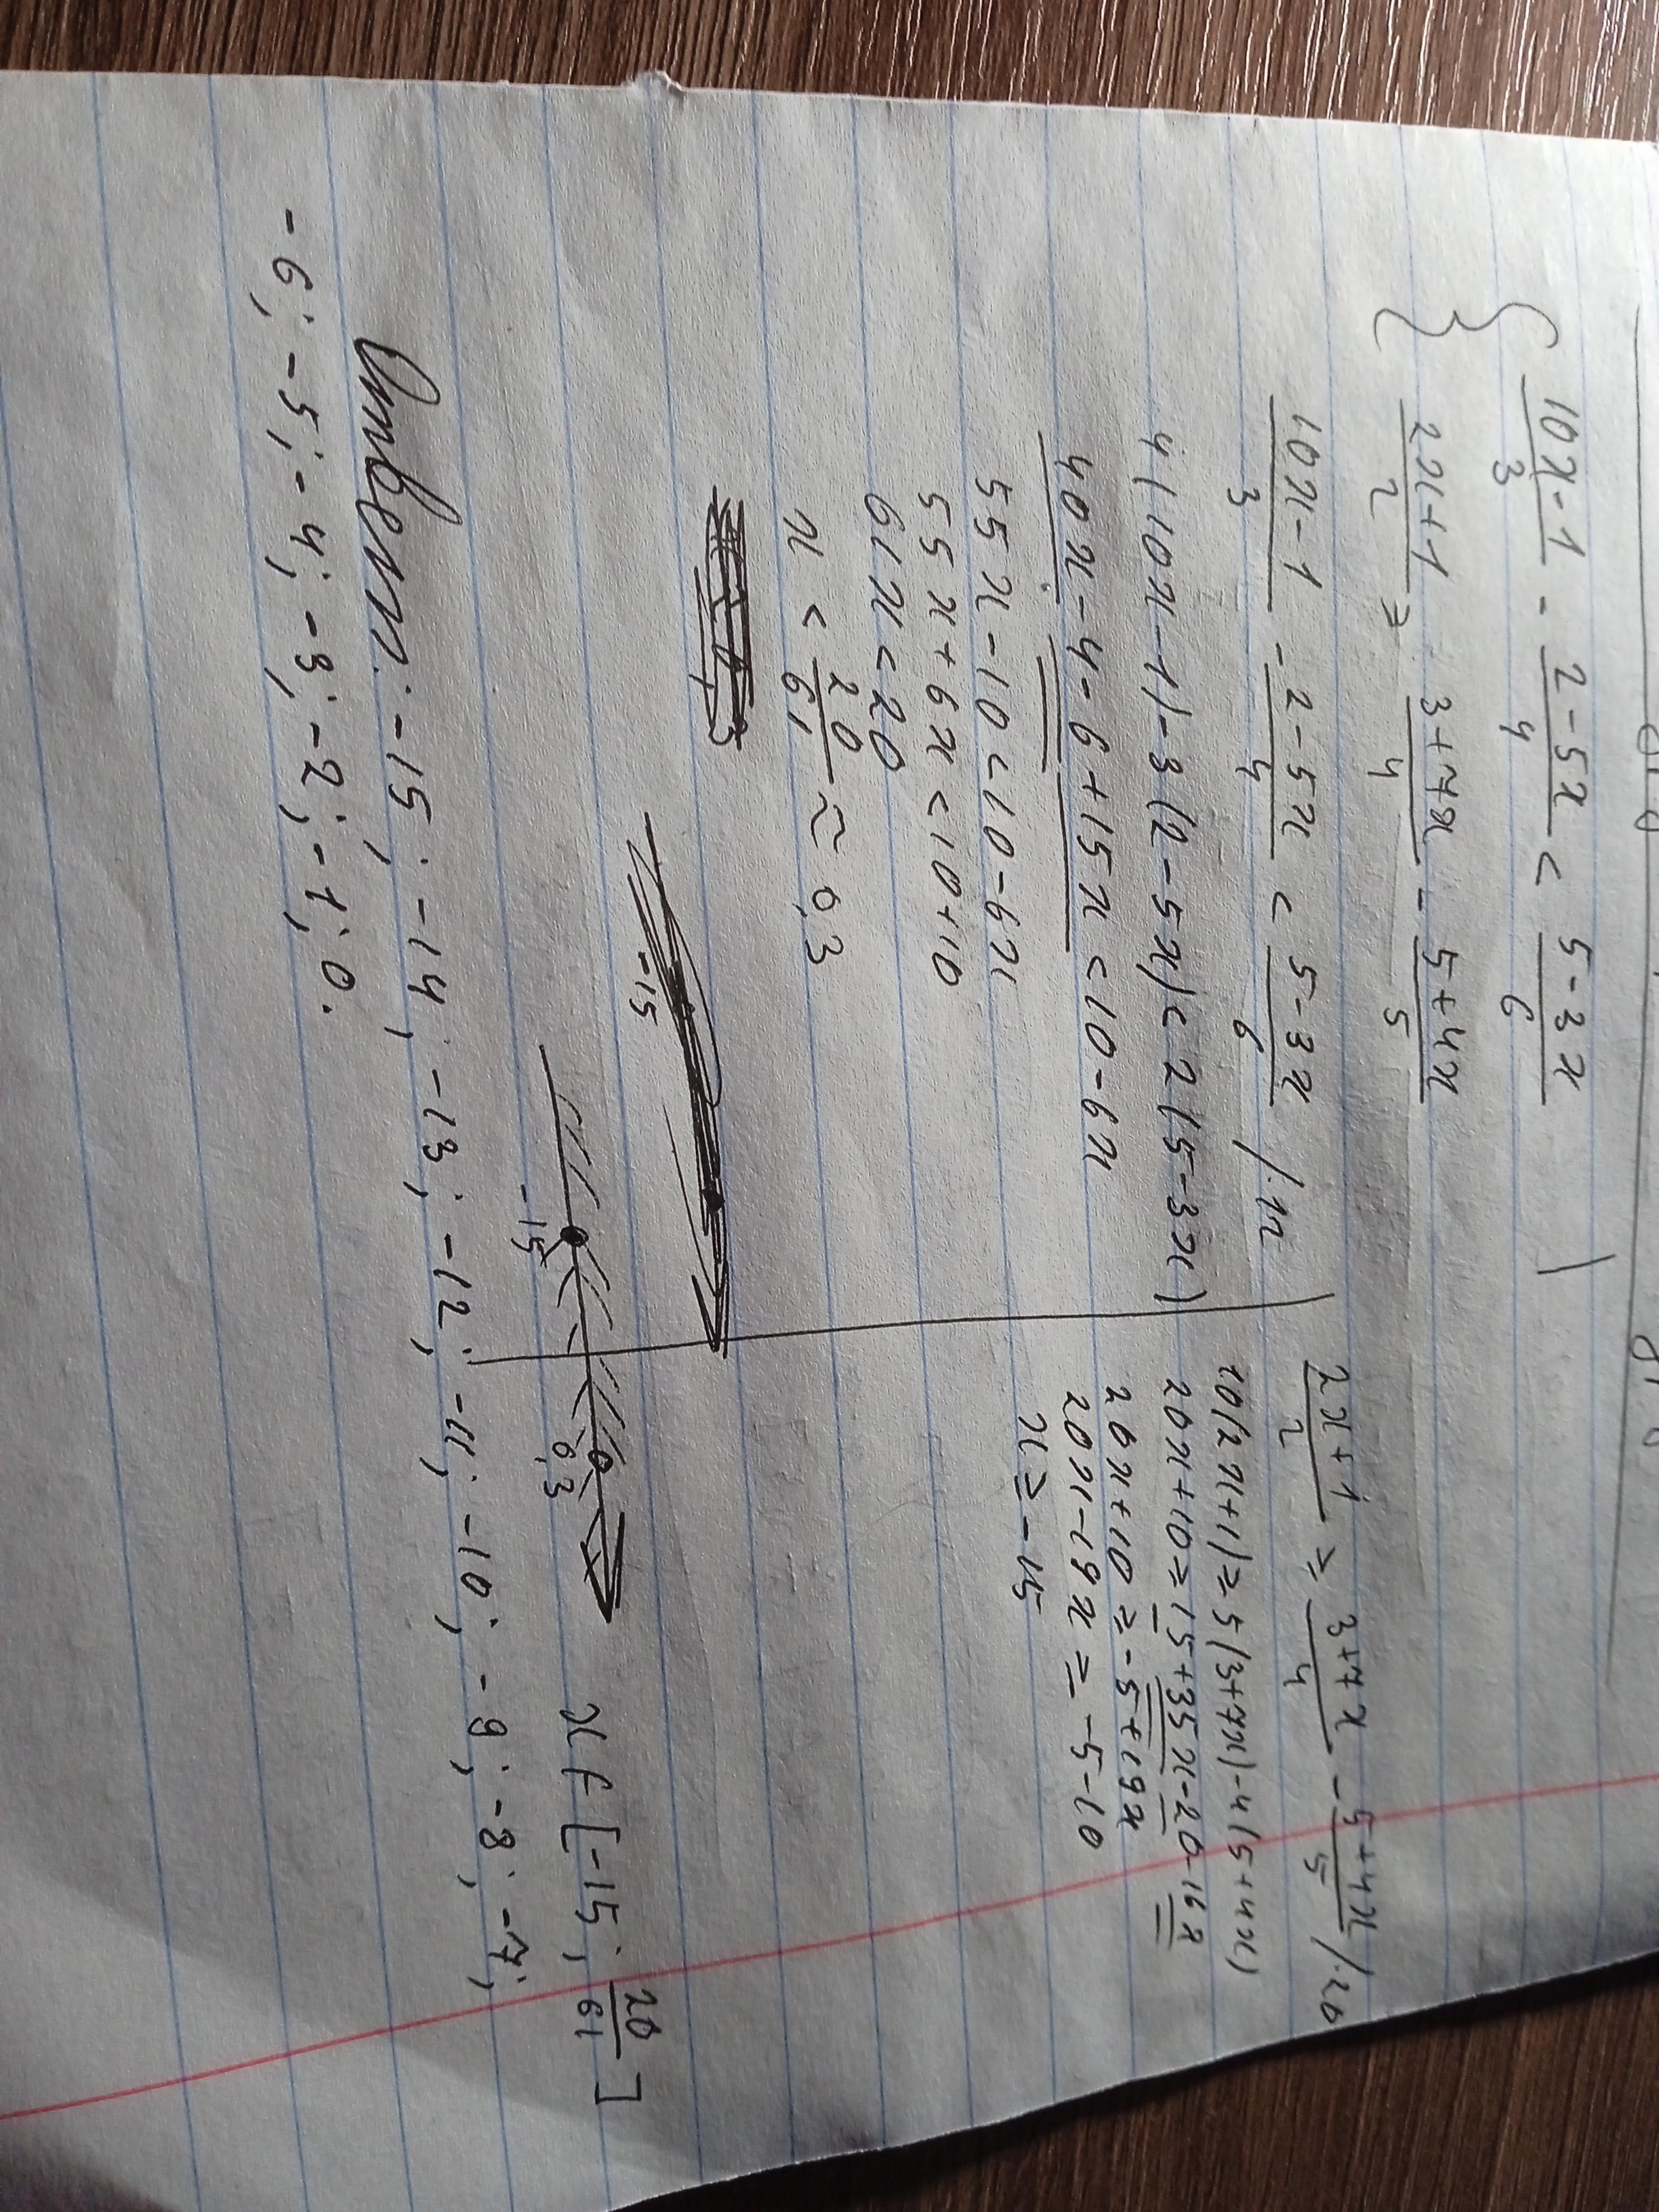 { (10x-1)/3 - (2-5x)/4 < (5-3x)/6
(2x+1)/2 ≥ (3+7x)/4 - (5+4x)/5
(10x-1)/3 - (2-5x)/4 < (5-3x)/6 /·12
4(10x-1)-3(2-5x)<2(5-3x)
40x-4-6+15x<10-6x
55x-10<10-6x
55x+6x<10+10
61x<20
x < 20/61 ≈ 0,3
(2x+1)/2 ≥ (3+7x)/4 - (5+4x)/5 /·20
10(2x+1)≥5(3+7x)-4(5+4x)
20x+10≥15+35x-20-16x
20x+10≥-5+19x
20x-19x≥-5-10
x≥-15
-15
-15 0,3
x ∈ [-15; 20/61]
Ответ: -15; -14; -13; -12; -11; -10; -9; -8; -7;
-6; -5; -4; -3; -2; -1; 0.